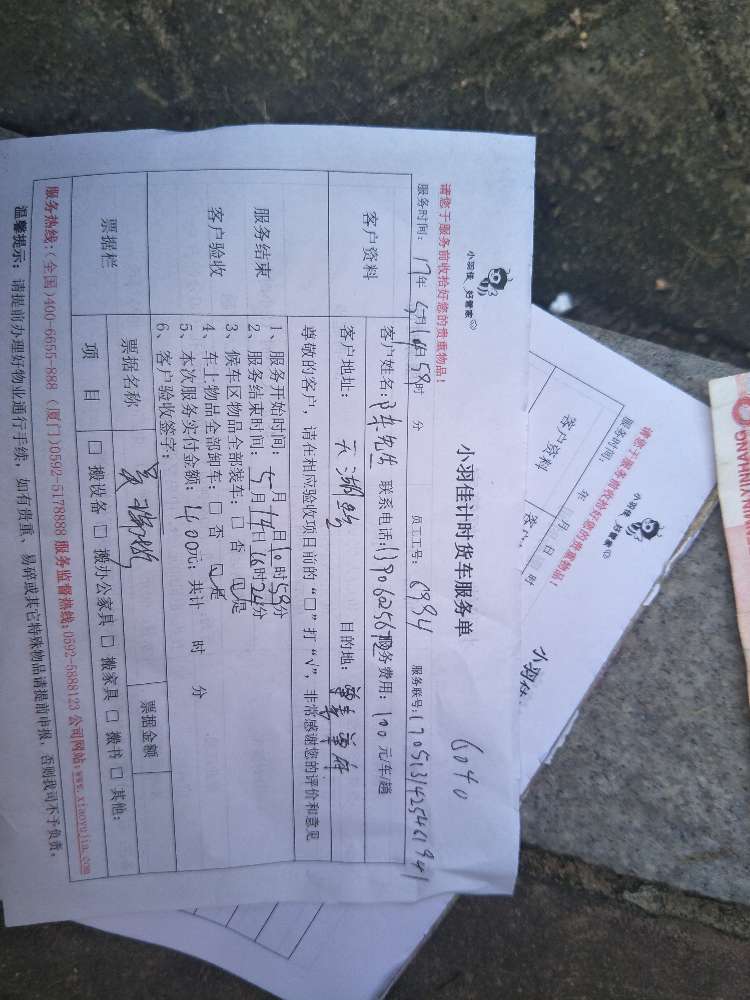 小羽佳 好管家
小羽佳计时货车服务单
6040
请您于服务前收拾好您的贵重物品!
服务时间: 17年 5月14日 时 分 员工工号: 6994 服务联号:
客户资料
客户姓名: 陈先生 联系电话: 服务费用: 100 元/车/趟
客户地址: 天湖 目的地:
尊敬的客户, 请在相应验收项目前的“□”打“√”, 非常感谢您的评价和意见
服务结束
客户验收
1、服务开始时间: 月 日10时59分
2、服务结束时间: 5月14日16时24分
3、候车区物品全部装车: □ 否 □是
4、车上物品全部卸车: □ 否 □是
5、本次服务实付金额: 400元; 共计 时 分
6、客户验收签字:
票据栏
票据名称 票据金额
项 目 □ 搬设备 □ 搬办公家具 □ 搬家具 □ 搬书 □ 其他:
服务热线:(全国)400-6655-888 (厦门)0592-5178888 服务监督热线:0592-5888123 公司网站:www.xiaoyujia.com
温馨提示: 请提前办理好物业通行手续, 如有贵重、易碎或其它特殊物品请提前申报, 否则我司不予负责。
小羽佳 好管家
小羽佳
请您于服务前收拾好您的贵重物品!
服务时间: 年 月 日 时
客户资料